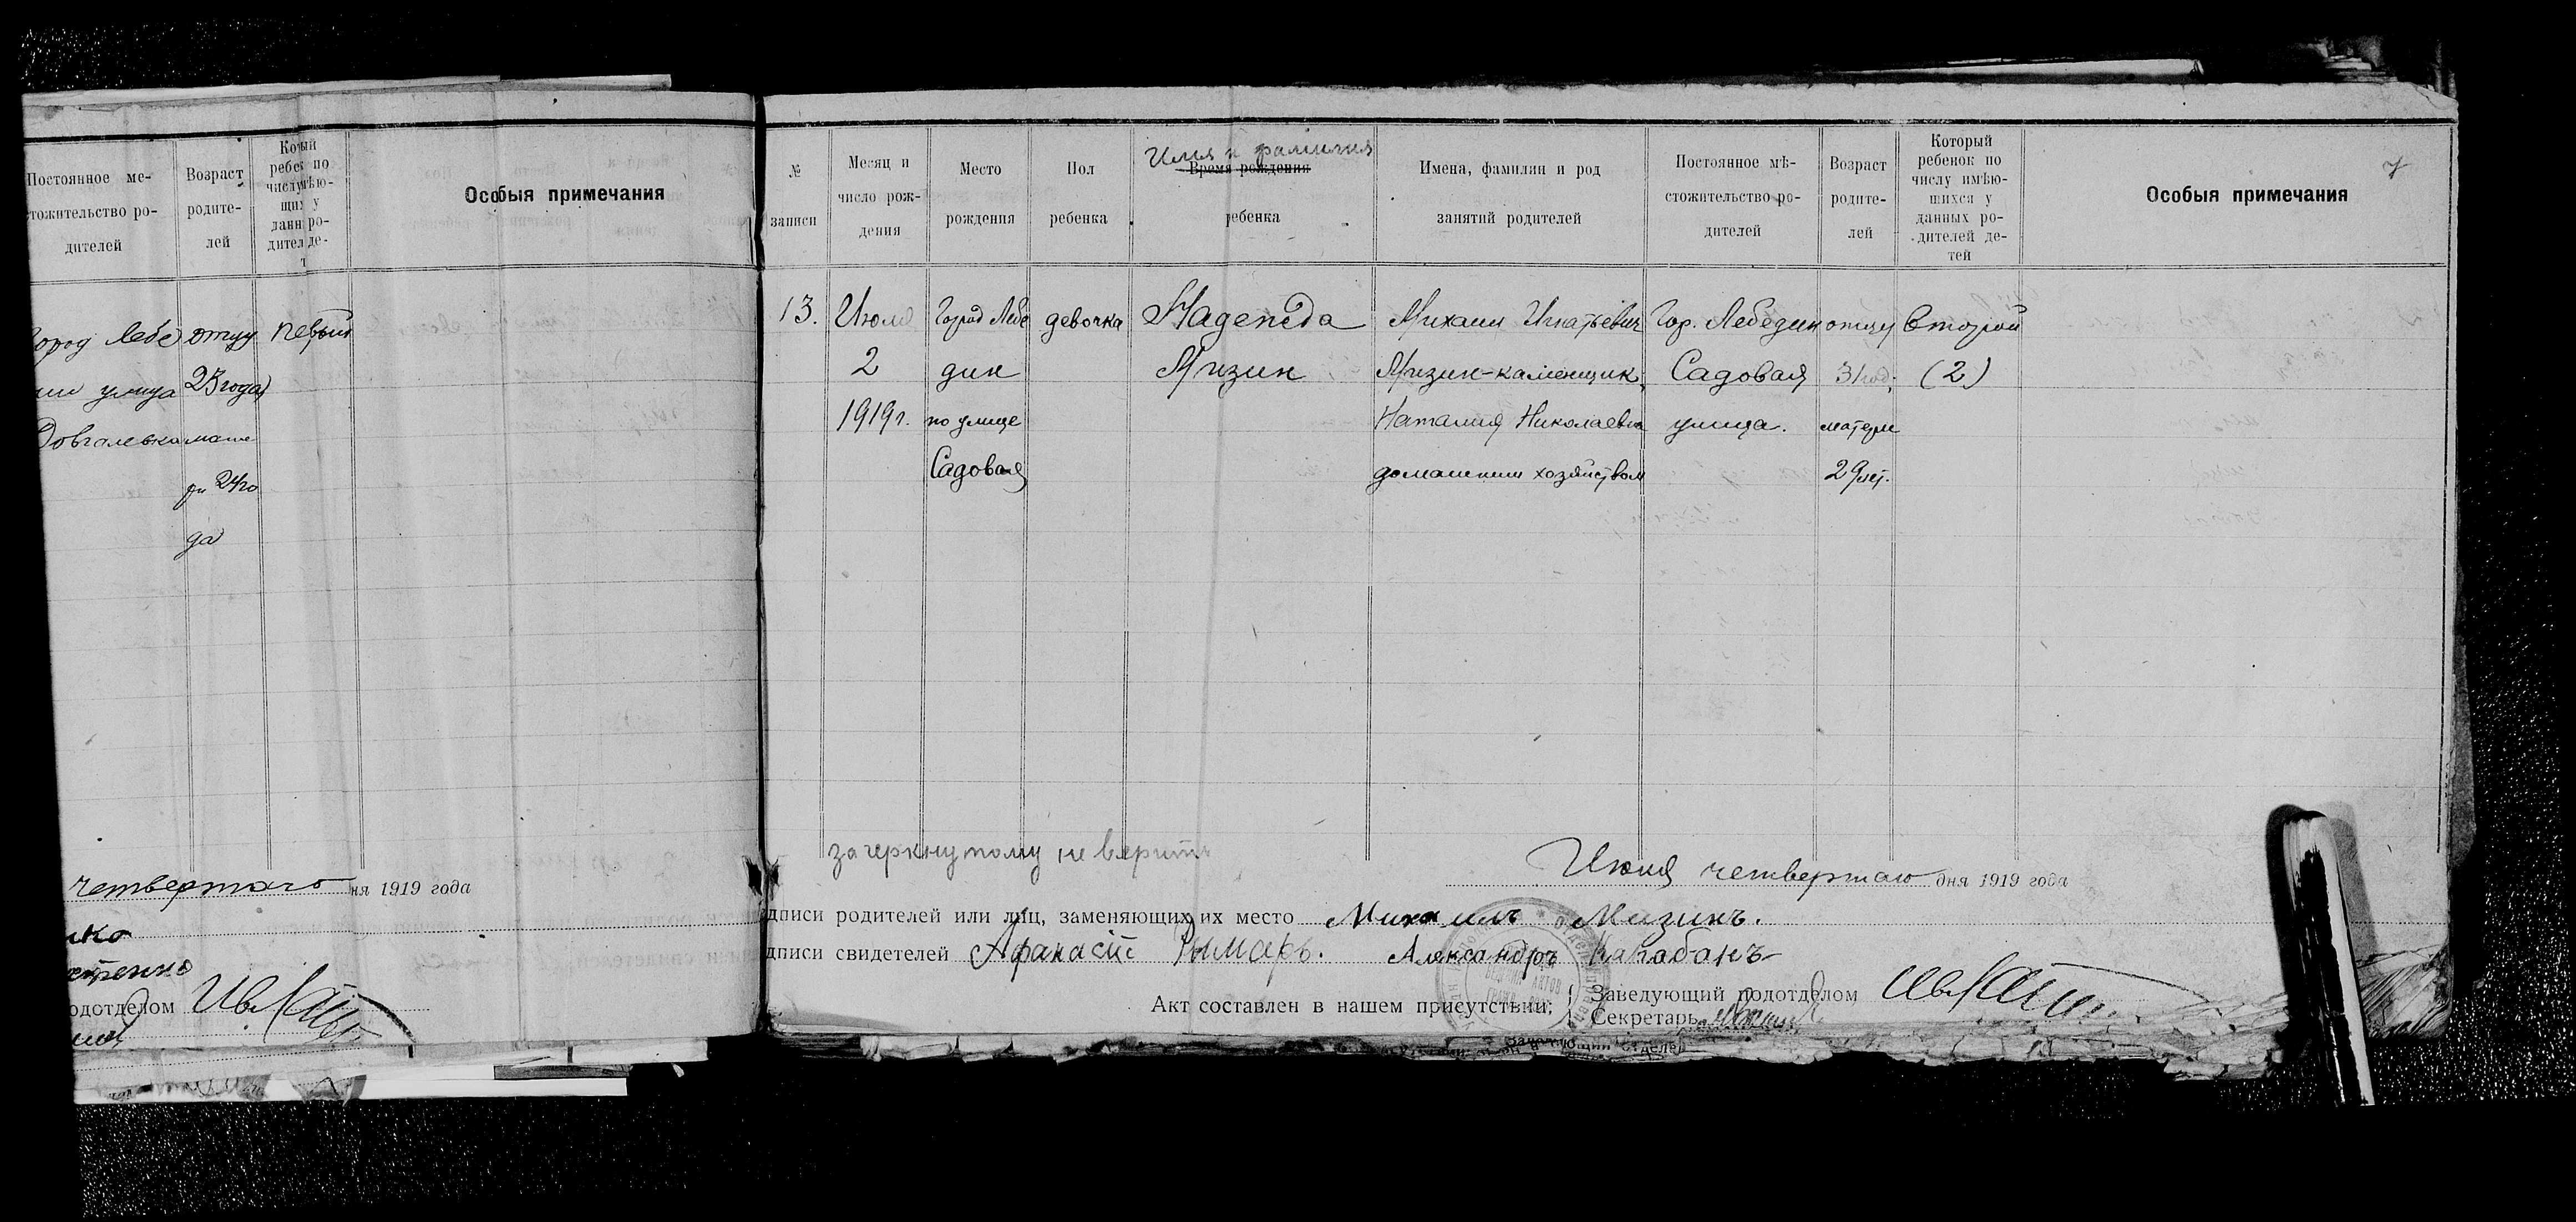 Постоянное ме-
тожительство ро-
дителей
Возраст
родите-
лей
Особыя примечания
ород Лебе
ин улица
Довгалевка
отцу
23 года
мате
ри 24 го
да
первый
четвертаго ня 1919 года
нко
одотделом
№
записи
Месяц и
число рож-
дения
Место
рождения
Пол
ребенка
Имя и фамилия
Время рождения
ребенка
Имена, фамилии и род
занятий родителей
Постоянное мѣ-
стожительство ро-
дителей
Возраст
родите-
лей
Который
ребенок по
числу имѣю-
щихся у
данных ро-
дителей де-
тей
Особыя примечания
7
13.
Июля
2
1919 г.
Город Лебе
дин
по улице
Садовая
девочка
Надежда
Мизин
Михаил Игнатьевич
Мизин-каменщик,
Наталия Николаевна
домашним хозяйством
Гор. Лебедин
Садовая
улица.
отцу
31 год;
матери
29 лет.
Второй
(2)
зачеркнутому не верить
четвертаго дня 1919 года
дписи родителей или лиц, заменяющих их место Михаилъ Мизинъ.
дписи свидетелей Афанасій Рымарь. Александръ Карабанъ
Акт составлен в нашем присутствии:
Заведующий подотделом
Секретарь